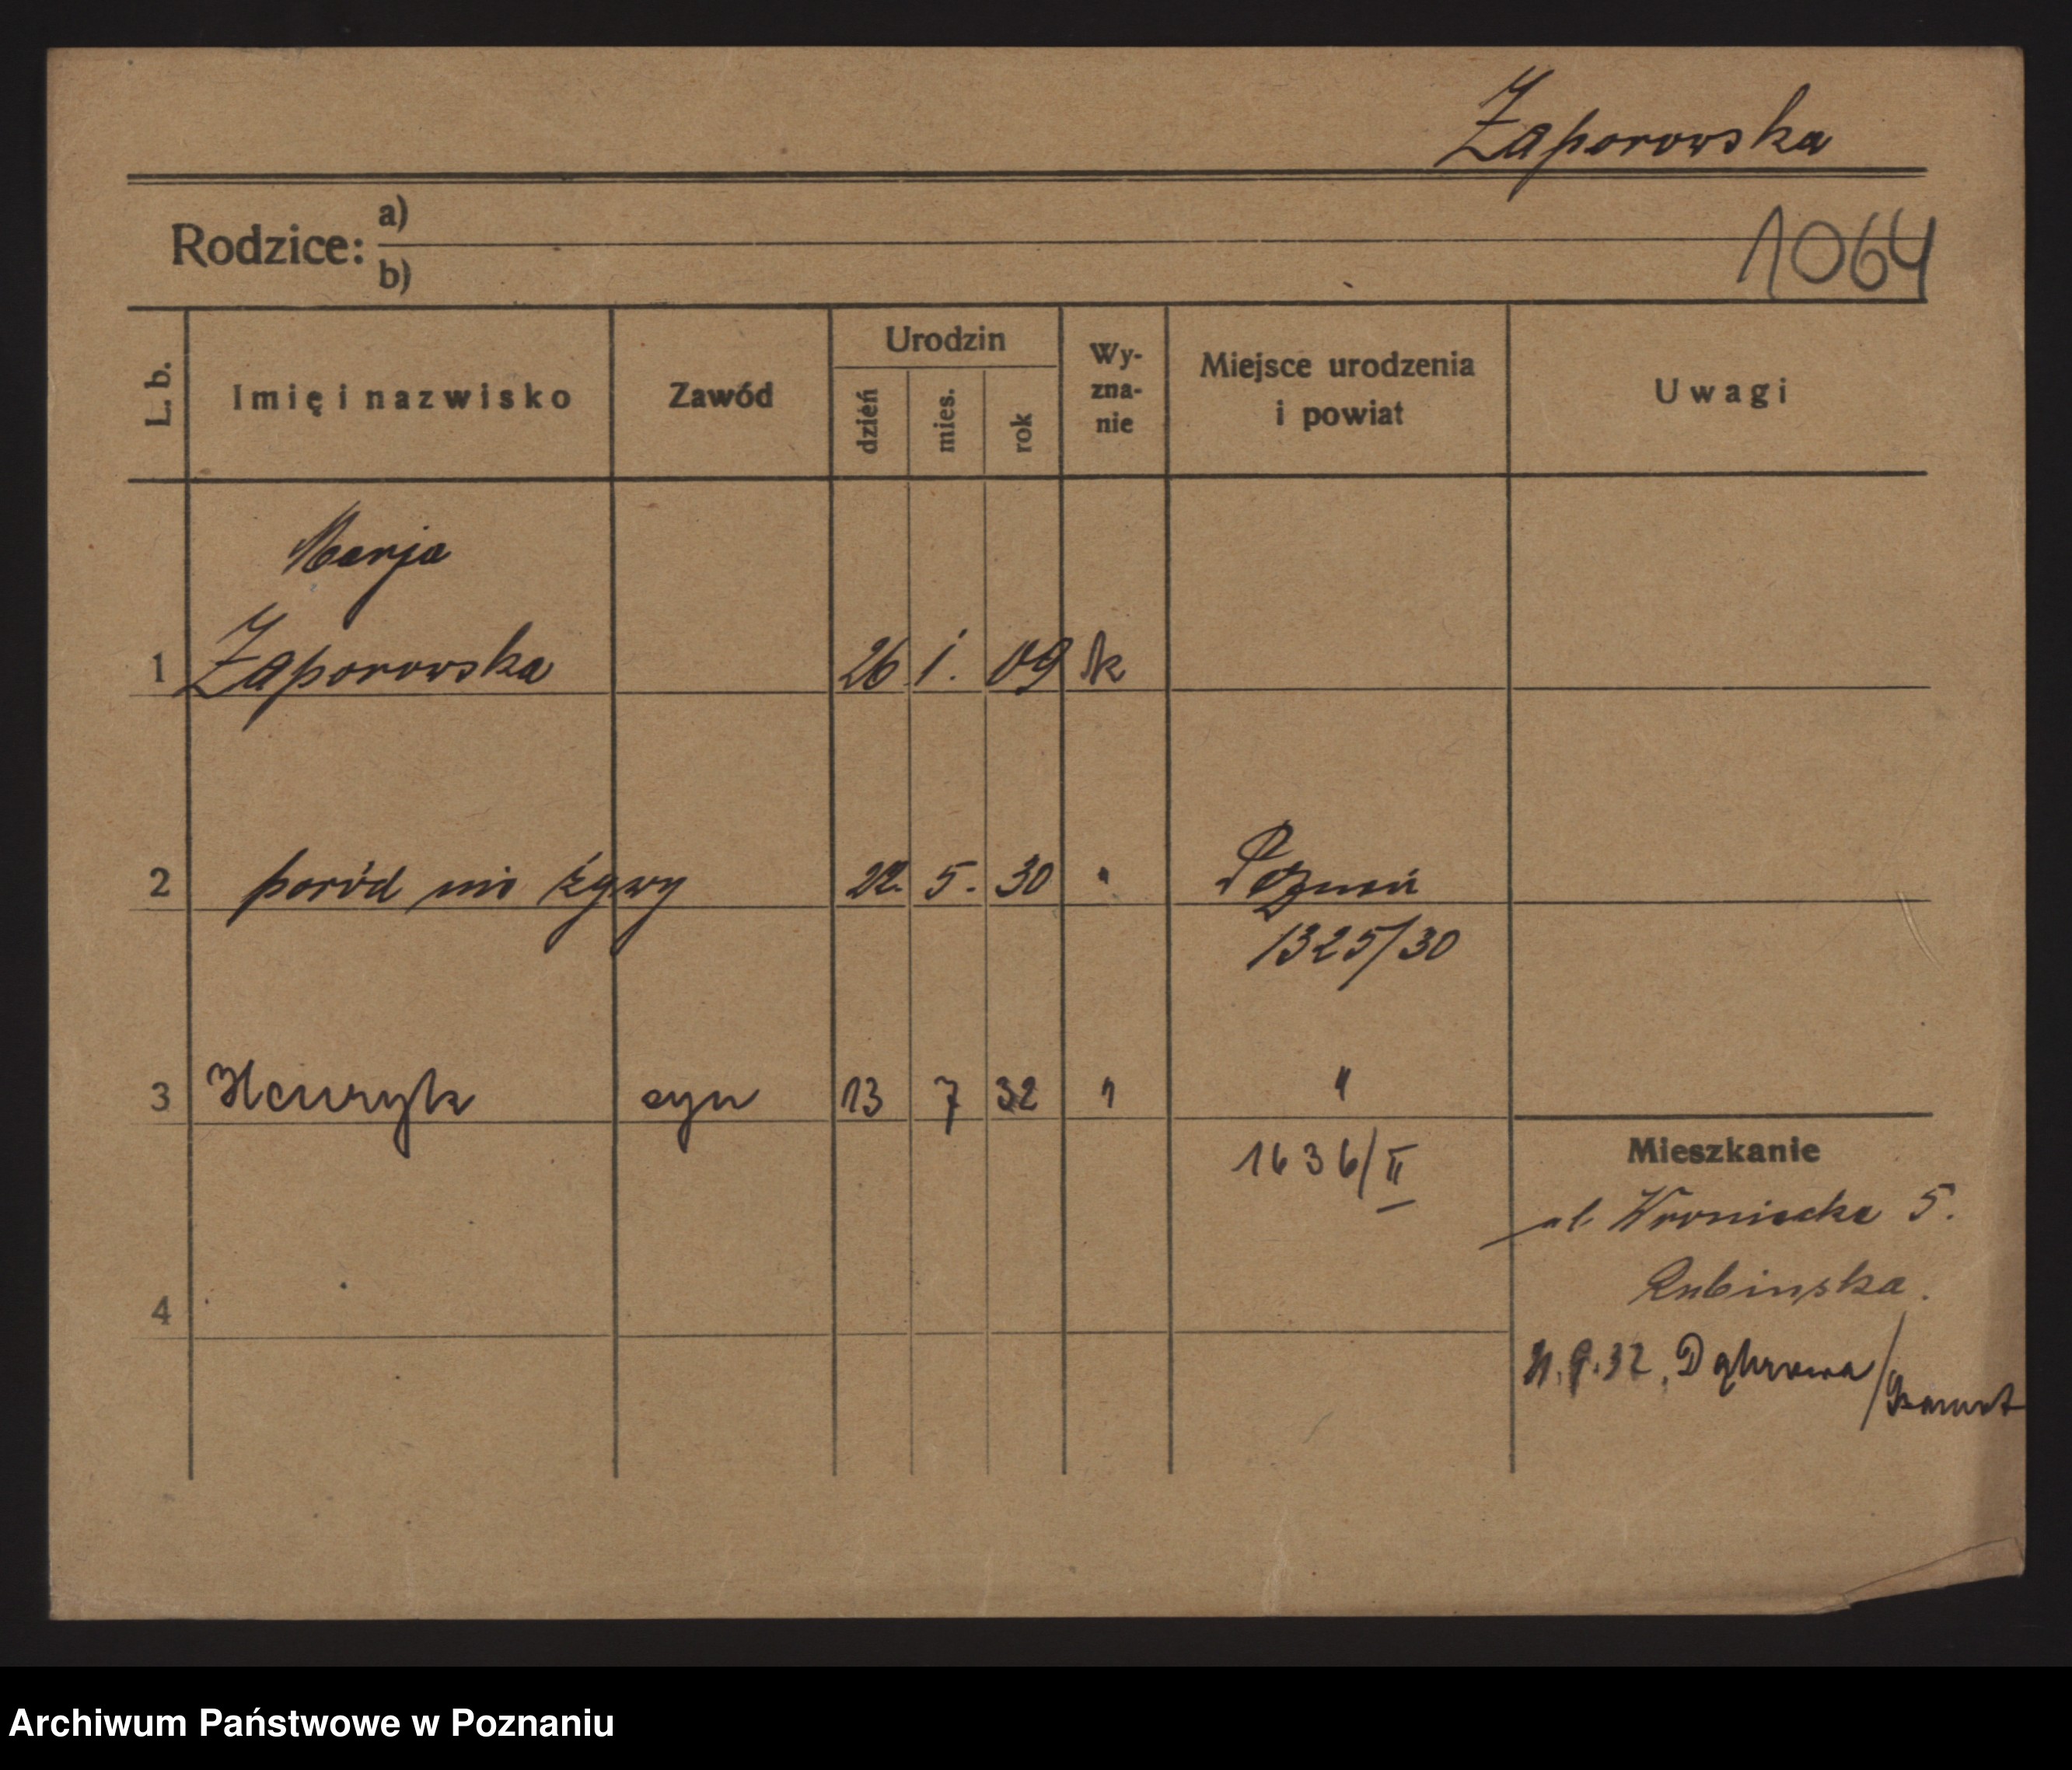 Zaporowska
Rodzice: a)
b)
1064
L. b. Imię i nazwisko Zawód Urodzin dzień mies. rok Wy-zna-nie Miejsce urodzenia i powiat Uwagi
Marja
1 Zaporowska 26 1. 09 k
2 poród nie żywy 22. 5. 30 " Poznań
1325/30
3 Henryk syn 13 7 32 " "
1636/II
Mieszkanie
ul. Wroniecka 5.
Rubinska.
4
32, Dąbrowa/
Archiwum Państwowe w Poznaniu